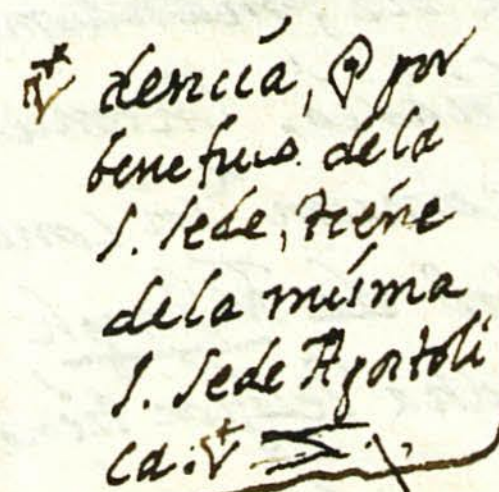 dencia, q̃ por
beneficio dela
S. Sede, tiene
dela misma
S. Sede Apostoli
ca.